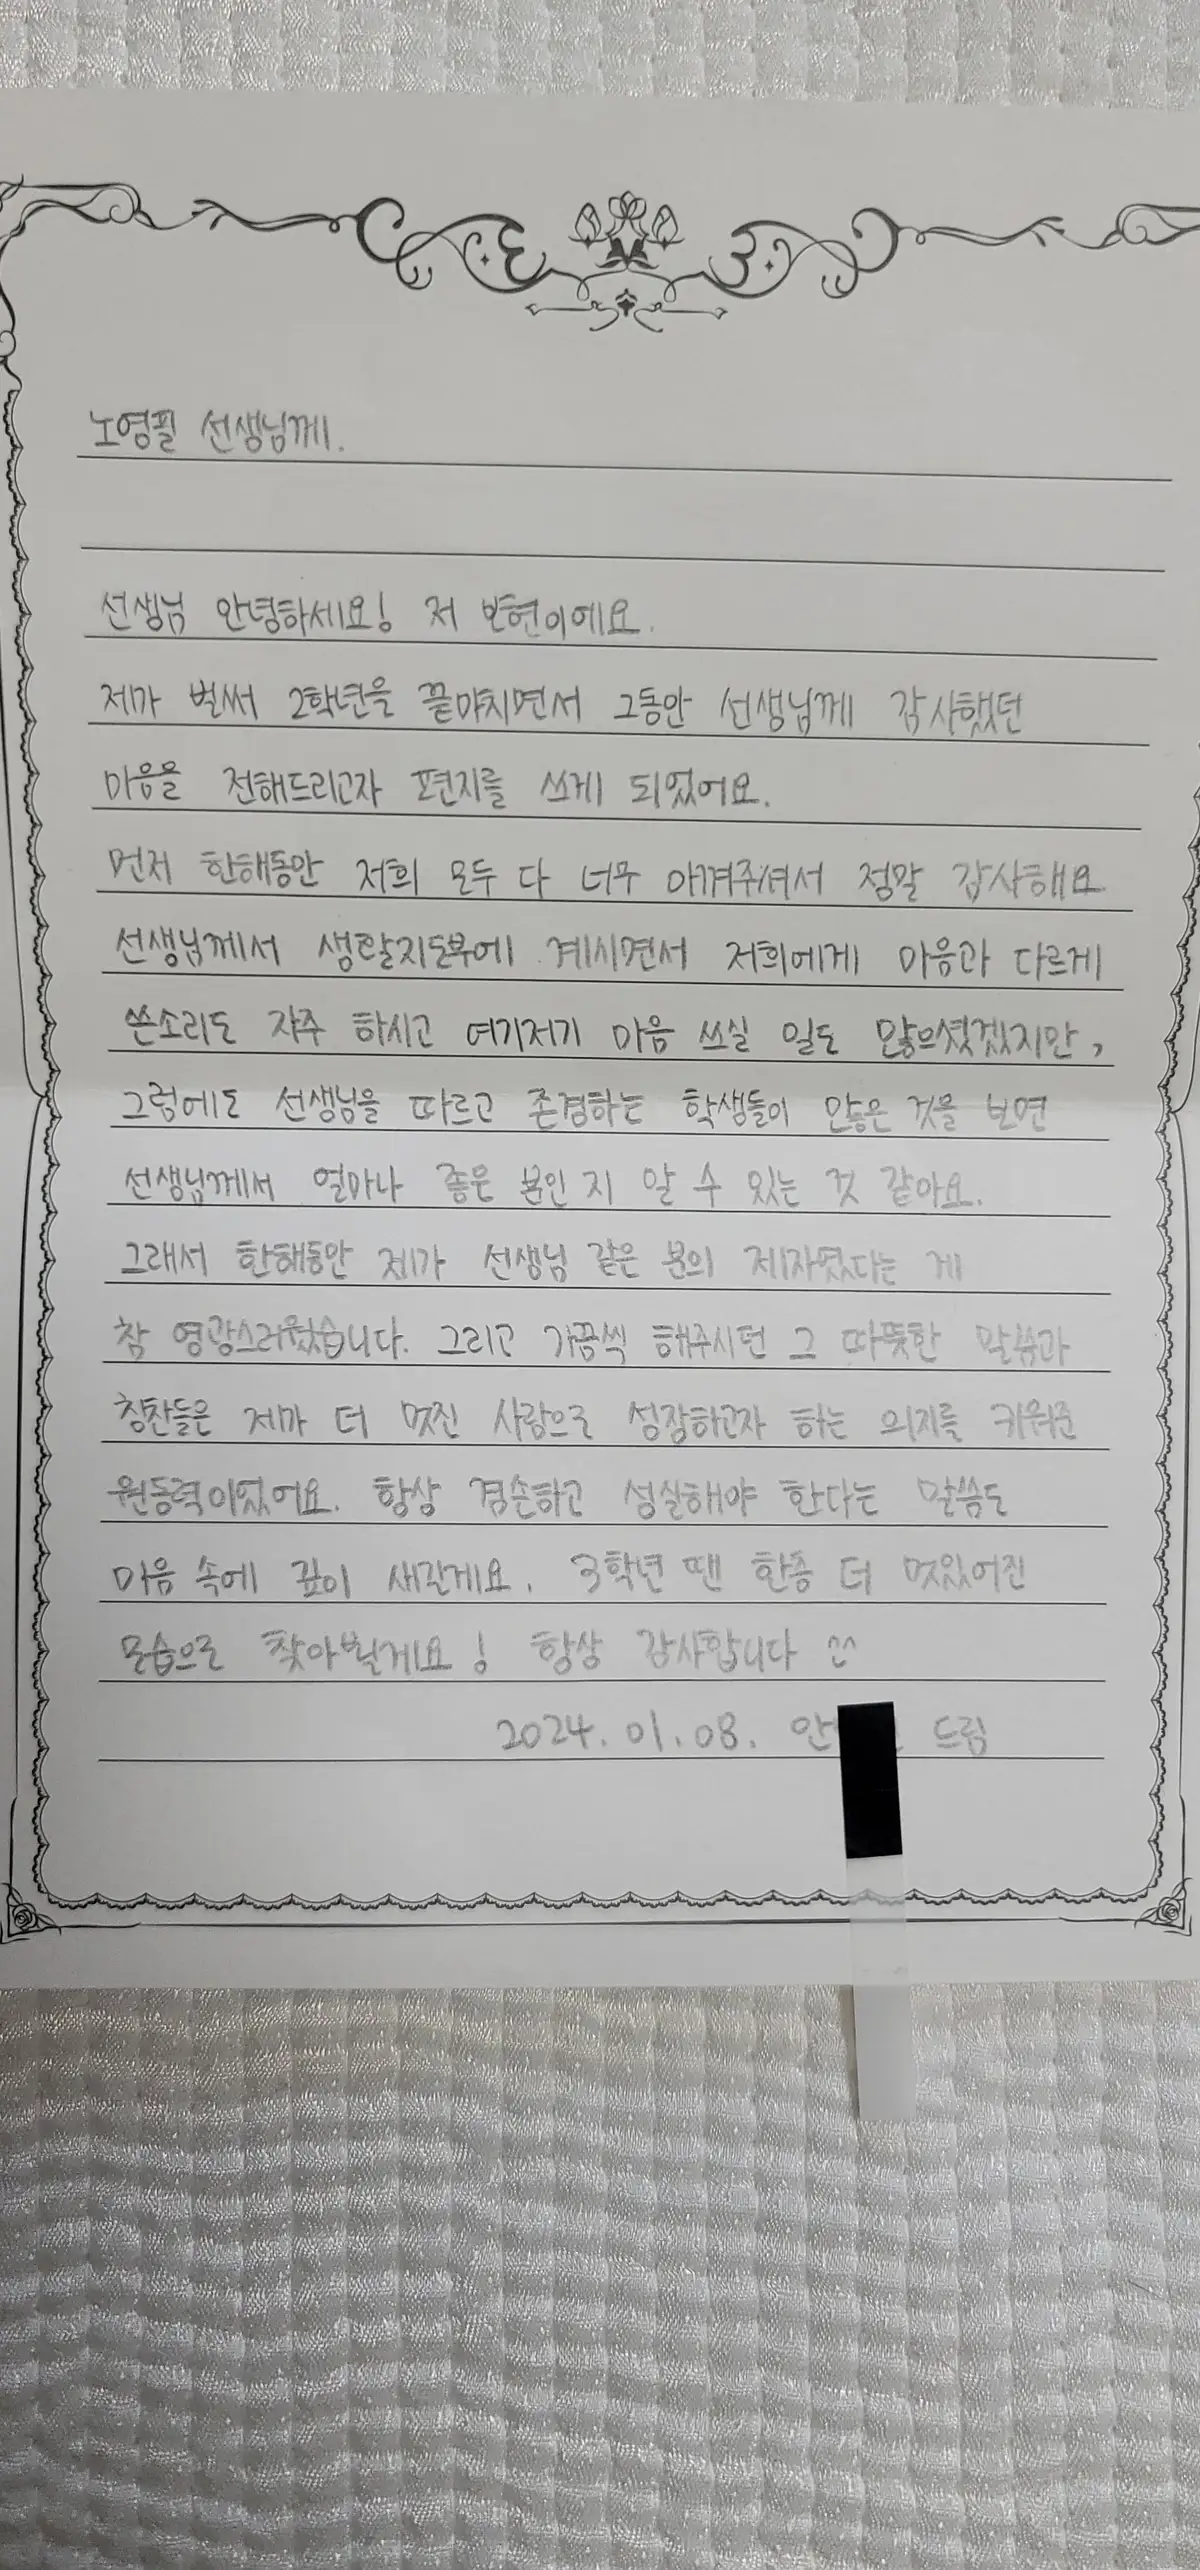 노영필 선생님께.
선생님 안녕하세요! 저 보현이에요.
제가 벌써 2학년을 끝마치면서 그동안 선생님께 감사했던
마음을 전해드리고자 편지를 쓰게 되었어요.
먼저 한해동안 저희 모두 다 너무 아껴주셔서 정말 감사해요
선생님께서 생활지도부에 계시면서 저희에게 마음과 다르게
쓴소리도 자주 하시고 여기저기 마음 쓰실 일도 많으셨겠지만,
그럼에도 선생님을 따르고 존경하는 학생들이 많은 것을 보면
선생님께서 얼마나 좋은 분인 지 알 수 있는 것 같아요.
그래서 한해동안 제가 선생님 같은 분의 제자였다는 게
참 영광스러웠습니다. 그리고 가끔씩 해주시던 그 따뜻한 말씀과
칭찬들은 제가 더 멋진 사람으로 성장하고자 하는 의지를 키워준
원동력이었어요. 항상 겸손하고 성실해야 한다는 말씀도
마음 속에 깊이 새길게요. 3학년 땐 한층 더 멋있어진
모습으로 찾아뵐게요! 항상 감사합니다 ^^
2024.01.08. 안 드림